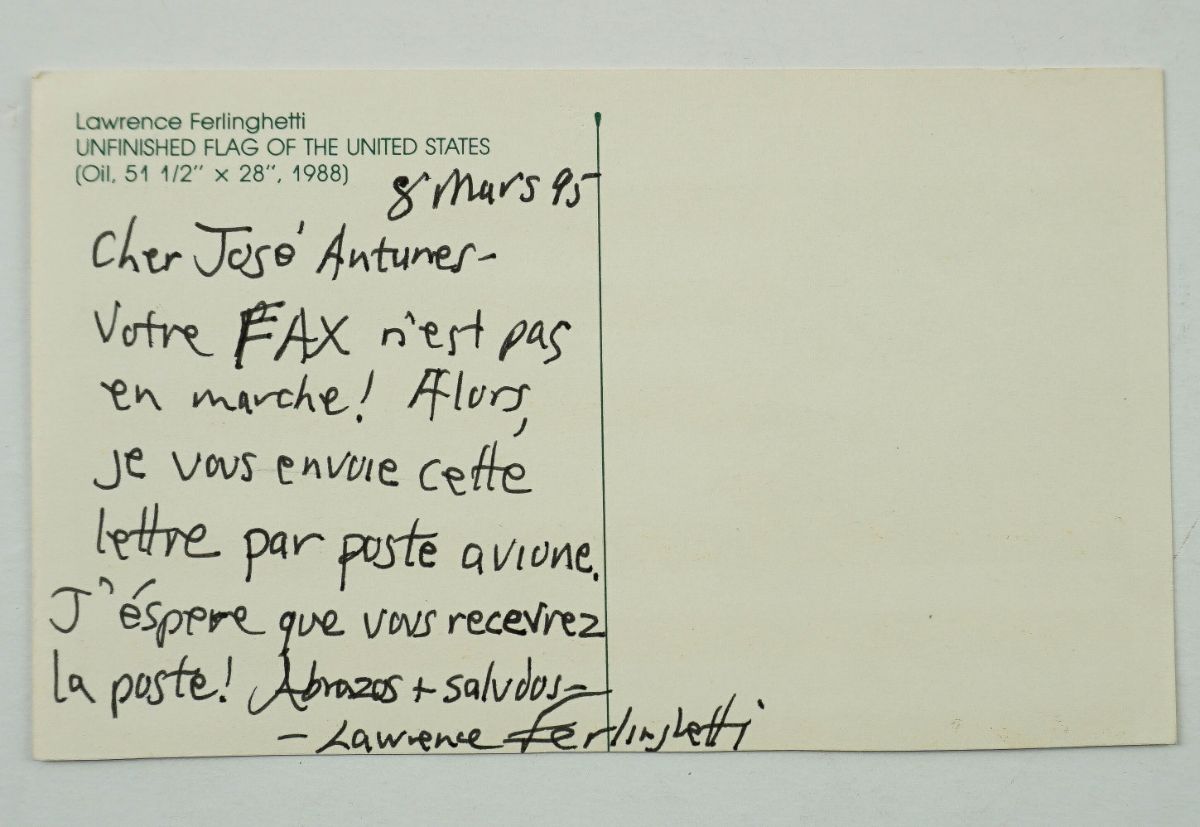 Lawrence Ferlinghetti
UNFINISHED FLAG OF THE UNITED STATES
(Oil, 51 1/2" x 28", 1988)
8 Mars 95
Cher José Antunes-
Votre FAX n'est pas
en marche! Alors,
je vous envoie cetté
lettre par poste avione.
J'éspere que vous recevrez
la poste! Abrazos + saludos-
- Lawrence Ferlinghetti